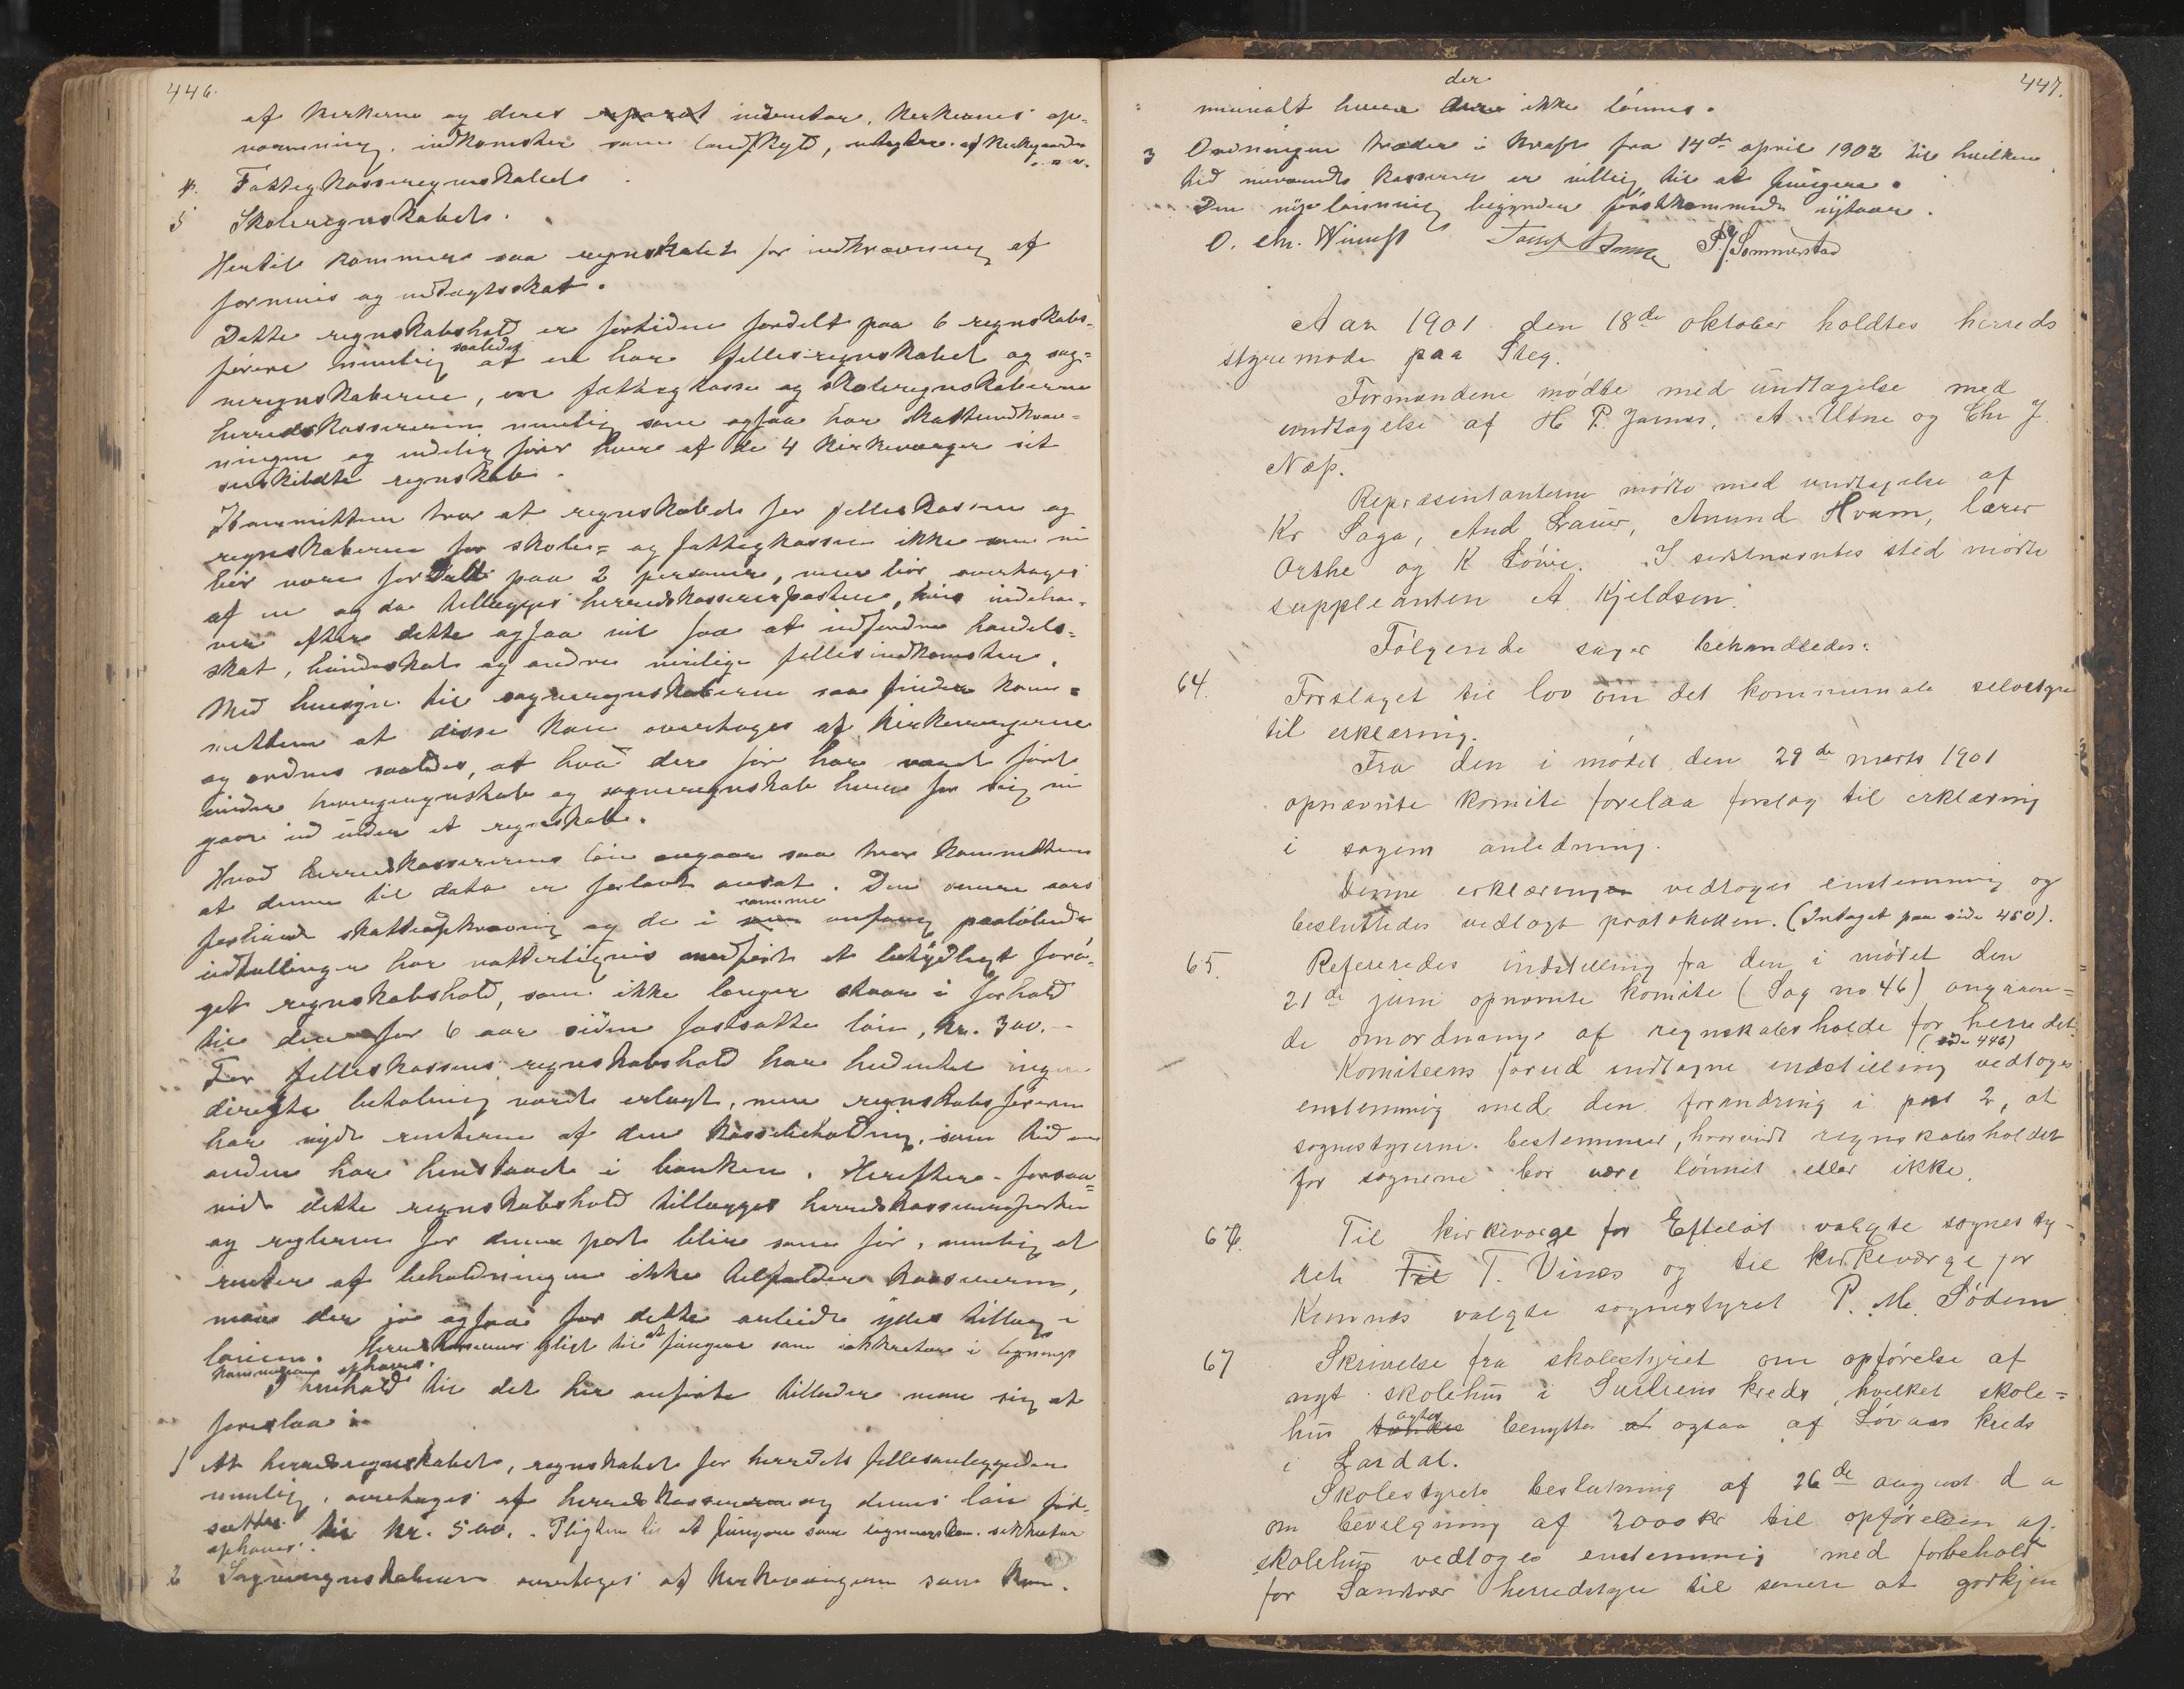 446.
af kirkerne og deres inventar, kirkernes op-
varmning, indkomster som landskyld, utgifter af kirkegaarde
o. s. v.
4. Fattigkasseregnskabet
5 Skoleregnskabet.
Hertil kommer saa regnskabet for indkrævning af
formues og indtægtsskat.
Dette regnskabshold er fortiden fordelt paa 6 regnskabs-
førere nemlig saaledes at en har fellesregnskabet og sog-
neregnskaberne, en fattigkasse og skoleregnskaberne
herredskassereren nemlig som ogsaa har skatteindkræv-
ningen og endelig fører hver af de 4 kirkeværger sit
særskildte regnskab.
Kommitteen tror at regnskabet for felleskassen og
regnskaberne for skole- og fattigkassen ikke som nu
bør være fordelt paa 2 personer, men bør overtages
af en og da tillægges herredskassererposten, hvis indeha-
ver efter dette ogsaa vil faa at indfordre handels-
skat, hundeskat og andre mulige fellesindkomster.
Med hensyn til sogneregnskaberne saa finder kom-
mitteen at disse kan overtages af kirkeværgerne
og ordnes saaledes, at hvad der før har været ført
under værgeregnskab og sogneregnskab hver for sig nu
gaar ind under et regnskab.
Hvad herredskassererens løn angaar saa tror kommitteen
at denne til dato er for lavt ansat. Den senere aars
forhøiede skatteopkrævning og de i samme anfang paaløbende
udtællinger har naturligvis medført et betydeligt forø-
get regnskabshold, som ikke længer staar i forhold
til den for 6 aar siden fastsatte løn, kr. 300.-
For felleskassens regnskabshold har hidentil ingen
direkte betaling været erlagt, men regnskabsføreren
har nydt renterne af den kassebeholdning, som tid om
anden har henstaaet i banken. Herefter - forsaa-
vidt dette regnskabshold tillægges herredskassererposten
og reglerne for denne post blir som før, nemlig at
renter af beholdningen ikke tilfalder kassereren,
maa der jo ogsaa for dette arbeide ydes tillæg i
lønnen. Herredskassererens pligt til at fungere som sekretær i lignings
kommissionen ophæves.
I henhold til det her anførte tillader man sig at
foreslaa:
1 At herredsregnskabet, regnskabet for herredets fellesanliggender
nemlig, overtages af herredskassereren og dennes løn fast-
sættes til kr. 500. - Pligten til at fungere som lignings sekretær
ophæves.
2 Sogneregnskaberne overtages af kirkeværgerne som kom-
447.
munalt hverv der ikke lønnes.
3 Ordningen træder i kraft fra 14de april 1902 til hvilken
tid nuværende kasserer er villig til at fungere.
Den nye lønning begynder førstkommende nytaar.
O. Chr. Winness P. J. Sommerstad
Aar 1901 den 18de oktober holdtes herreds
styremøde paa Steg.
Formændene mødte med undtagelse med
undtagelse af H P. Jarnes, A Utne og Chr J
Næss.
Repræsentanterne mødte med undtagelse af
Kr Saga, And Lauer, Amund Hvam, lærer
Orthe og K Løvre. I sidstnævntes sted mødte
suppleanten A Kjeldsen.
Følgende sager behandledes:
64. Forslaget til lov om det kommunale selvstyre
til erklæring.
Fra den i mødet den 29de marts 1901
opnævnte komite forelaa forslag til erklæring
i sagens anledning.
Denne erklæringen vedtoges enstemmig og
besluttedes vedlagt protokollen. (Indtaget paa side 450).
65. Refereredes indstilling fra den i mødet den
21de juni opnævnte komite (Sag no 46) angaaen-
de omordning af regnskabsholdet for herredet.
(side 446)
Komiteens forud indtagne indstilling vedtoges
enstemmig med den forandring i post 2, at
sognestyrerne bestemmer, hvorvidt regnskabsholdet
for sognene bør være lønnet eller ikke.
66. Til kirkeværge for Efteløt valgte sognesty-
ret Til T. Vinæs og til kirkeværge for
Komnes valgte sognestyret P. M. Sødem
67 Skrivelse fra skolestyret om opførelse af
nyt skolehus i kreds, hvilket skole-
hus agtes benyttes ogsaa af Løvaas kreds
i Lardal.
Skolestyrets beslutning af 26de august d a
om bevilgning af 2000 kr til opførelsen af
skolehus vedtoges enstemmig med forbehold
for Sandsvær herredstyre til senere at godkjen